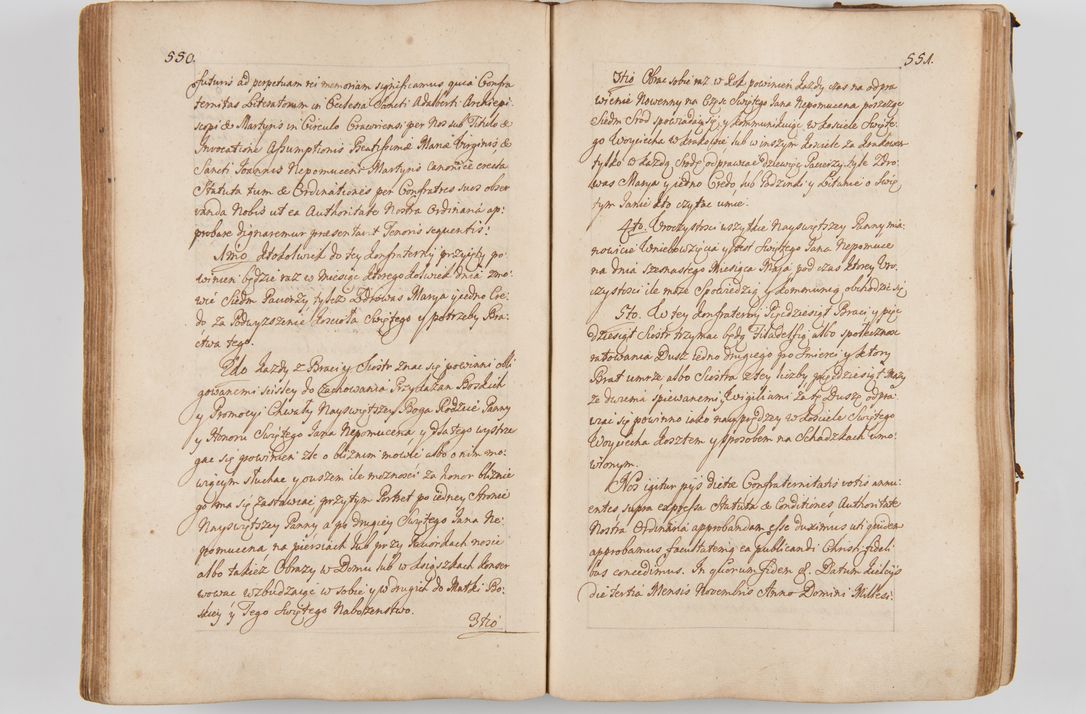 550.
futuris ad perpetuam rei memoriam significamus quia Confra
ternitas Literatorum in Ecclesia Sancti Adalberti Archiepi
scopi & Martyris in Circulo Cracoviensi per Nos sub Titulo &
Invocatione Assumptionis Beatissimæ Mariæ Virginis, &
Sancti Joannis Nepomuceni Martyris Canonice erecta
Statuta tum & Ordinationes per Confratres suos obser
vanda Nobis ut ea Authoritate Nostra Ordinaria ap:
probare dignaremur præsentavit Tenoris sequentis!
1mo. Ktokolwiek do tey Konfraterniy przyięty po
winien będzie raz w Miesiąc ktoregokolwiek dnia zmo
wić Siedm Pacierzy tylez Zdrowas Marya y iedno Cre
do za Podwyzszenie Koscioła Swiętego y potrzeby Bra
ctwa tego.
2do Kazdy z Braci y Siostr znac się powinni obli
gowanemi scisley do zachowania Przykazan Boskich
y Promocyi Chwały Nayswiętszey Boga Rodzice Panny
y Honoru Swiętego Jana Nepomucena, y dla tego wystrze
gac się powinien zle o bliznim mowic albo o nim mo
wiącym słuchac y owszem ile moznosci za honor bliznie
go ma się zastawiac przytym Portret po iedney stronie
Nayswiętszey Panny a po drugiey Swiętego Jana Ne:
pomucena na piersiach lub przy Kuordach nosic
albo takiez Obrazy w Domu lub w Ksiązkach konser
wowac wzbudzaiąc w sobie y w drugich do Matki Bo
skiey y Tego Swiętego Nabozenstwo.
3tio
551.
3tio Obrac sobie raz w Rok powinien kazdy czas na odpra
wienie Nowenny na Czesc Swiętego Jana Nepomucena porzęcz
Siedm Srod spowiadaiąc się y kommunikuiąc w Kosciele Swięte
go Woyciecha w Krakowie lub w inszym kosciele za Krakowem
tylko w kazdą Srodę odprawiac dziewięc Pacierzy tyle Zdro
was Marya y iedno Credo lub Godzinki y Litanie o Swię
tym Janie kto czytac umie.
4to. Uroczystosci wszytkie Nayswiętszey Panny mia
nowicie Wniebowzięcia y Fest Swiętego Jana Nepomuce
na dnia szesnastego Miesiąca Maja pod czas ktorey Uro
czystosci ile moze Spowiedzią y Kommunią obchodzic się
5to. W tey Konfraterniy Pięcdziesiąt Braci y pięc
dziesiąt Siostr trzymac będą Filadelfią albo społecznosc
ratowania Dusz iedno drugiego po smierci y ktory
Brat umrze albo Siostra z tey liczby pięcdziesiąt Mszy
ze dwiema spiewanemi, Wigiliami za tę Duszę odpra
wiac się powinno iako nayprędzey w kosciele Swiętego
Woyciecha kosztem y sposobem na Schadzkach umo
wionym.
Nos igitur pijs dictæ Confraternitatis votis annu
entes supra expressa Statuta & Conditiones, Authoritate
Nostra Ordinaria approbandam esse duximus uti quidem
approbamus, facultatemq ea publicandi Christi fideli
bus concedimus. In quorum fidem &. Datum Kielcijs
die tertia Mensis Novembris Anno Domini Millesi: